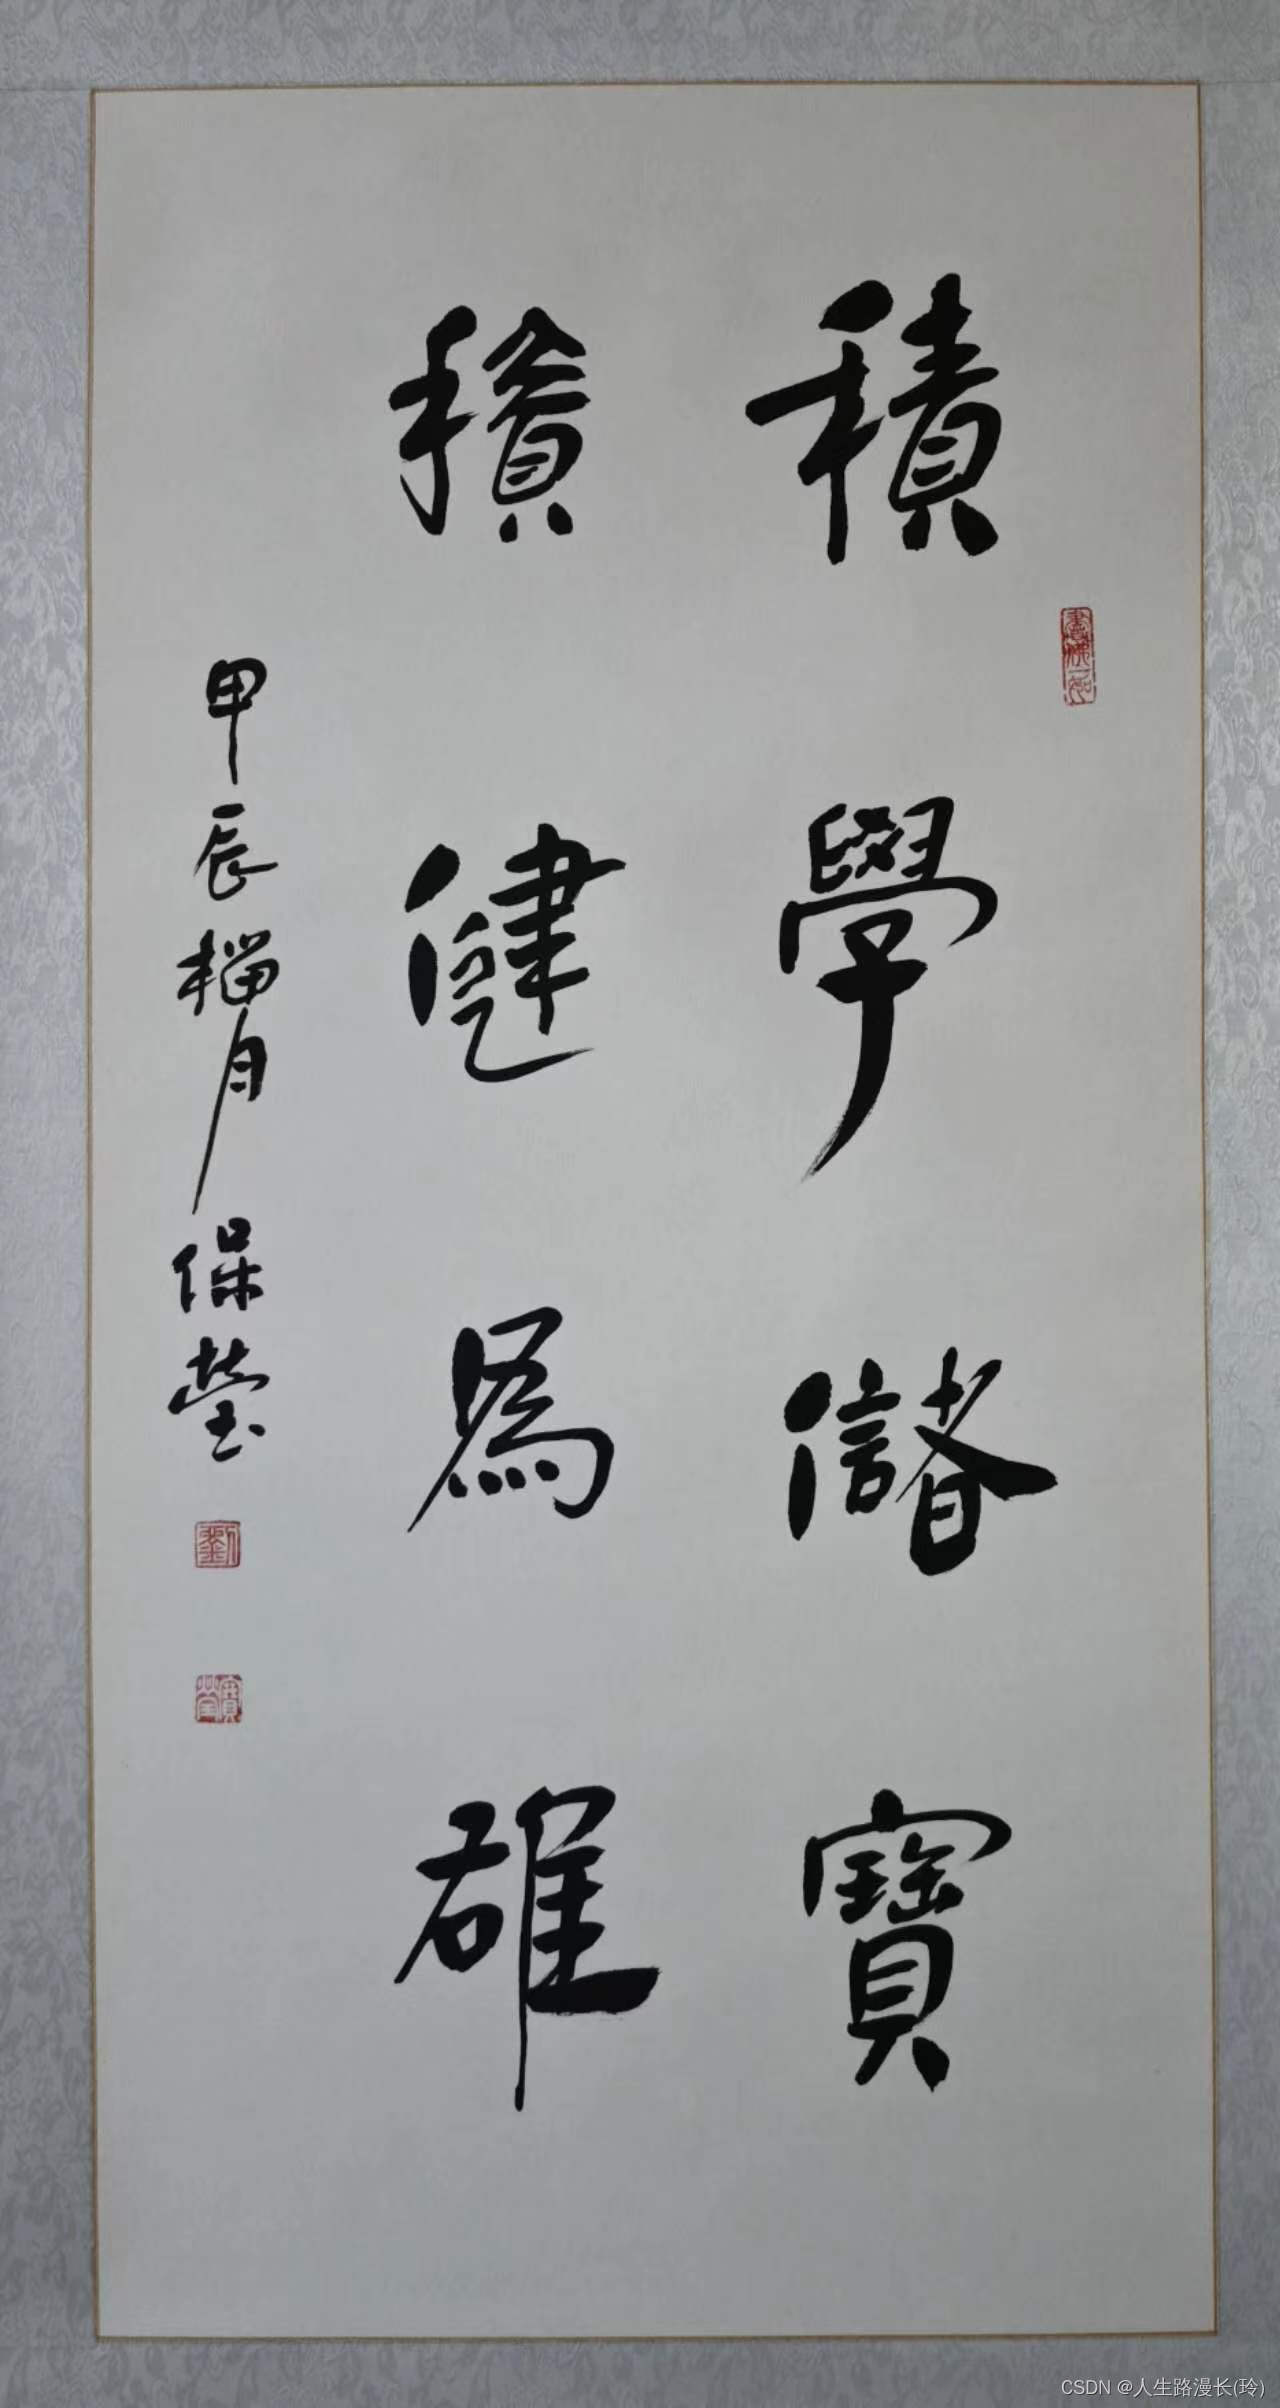 積學儲寶
積健為雄
甲辰榴月保瑩
劉
寶瑩
CSDN @人生路漫长(玲)